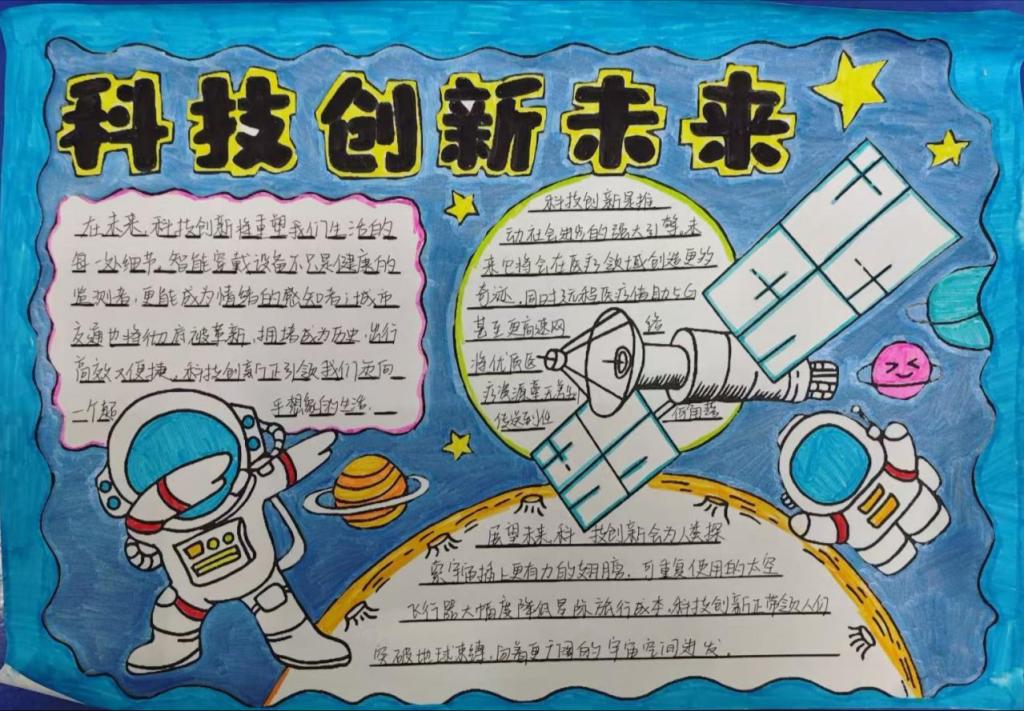 科技创新未来
在未来,科技创新将重塑我们生活的
每一处细节,智能穿戴设备不只是健康的
监测者,更能成为情绪的感知者,城市
交通也将彻底被革新,拥堵成为历史,出行
高效又便捷,科技创新正引领我们迈向
一个超 乎想象的生活.
科技创新是推
动社会进步的强大引擎,未
来它将会在医疗领域创造更多
奇迹,同时远程医疗借助5G
甚至更高速网 络
将优质医
疗资源毫无差
传送到任 何角落
展望未来,科技创新会为人类探
索宇宙插上更有力的翅膀,可重复使用的太空
飞行器大幅度降低星际旅行成本,科技创新正带领人们
突破地球束缚,向着更广阔的宇宙空间进发.